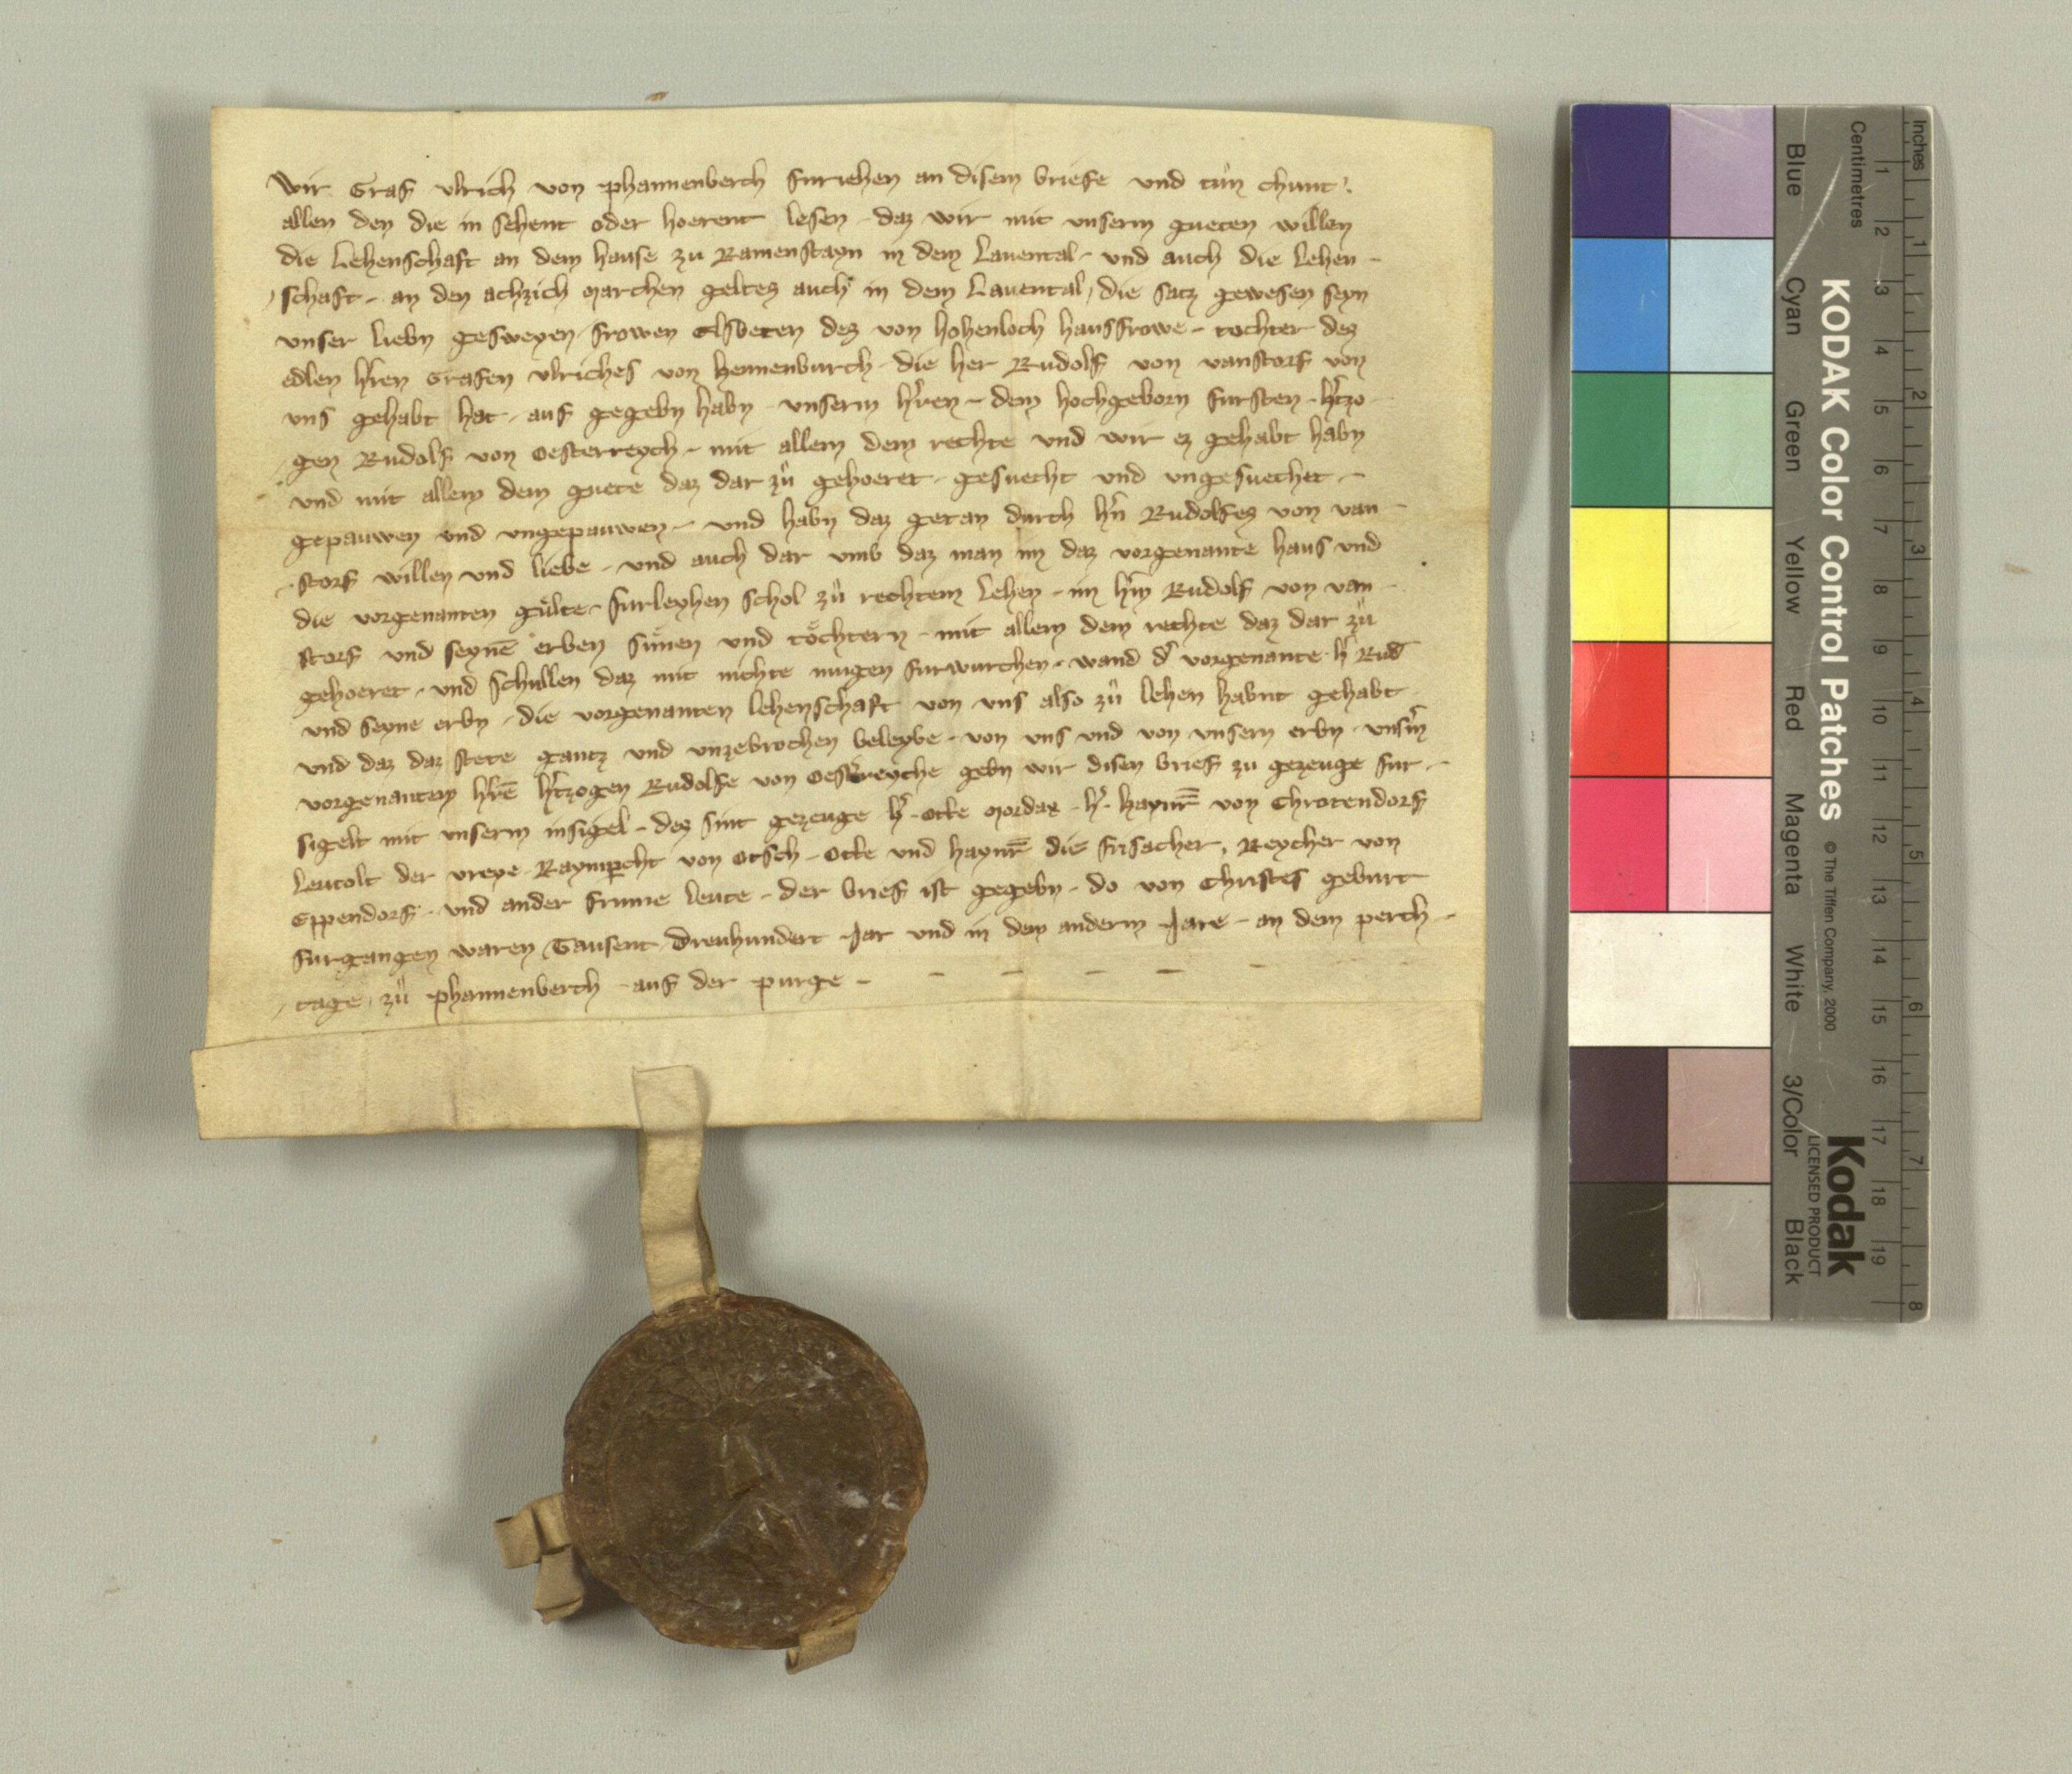 Wir Graf vlrich von phannenberch furiehen an disem briefe und tůn chunt.
allen den die in sehent oder hoerent lesen daz wir mit unserm gueten willen
die Lehenschaft an dem hause zu Ramenstayn in dem Lavental und auch die Lehen
schaft an den achzich marchen geltes auch in dem Lavental, die satz gewesen seyn
unser liebn gesweyen frowen Elsbeten dez von hohenloch hausfrowe tochter dez
edlen h'ren Grafen vlriches von Hennenburch die her Rudolf von vanstorf von
uns gehabt hat auf gegebn habn unserm h'ren dem hochgeborn fursten h'tzo
gen Rudolf von Oesterreych mit allem dem rechte und wir ez gehabt habn
und mit allem dem guete daz dar zů gehoeret gesuecht und ungesuechet
gepauwen und ungepauwen und habn daz getan durch h'n Rudolfes von van
storf willen und liebe und auch dar umb daz man im daz vorgenante haus und
die vorgenanten gülte furleyhen schol zů rechtem Lehen im h'm Rudolf von van
storf und seynē erben sünen und töchtern mit allem dem rechte daz dar zů
gehoeret und schullen daz mit nichte mugen furwurchen wand d' vorgenante h' Rud
und seyne erbn die vorgenanten lehenschaft von uns also zů lehen habnt gehabt
und daz daz stete gantz und unzebrochen beleybe von uns und von unsern erbn uns'm
vorgenantem h'rē h'tzogen Rudolfe von Oest'reyche gebn wir disen brief zu gezeuge fur
sigelt mit unserm insigel dez sint gezeuge h' Otte Mordax h' Haynr̄ von Chrotendorf
Leutolt der vreye Raymp̱cht von Otsch Otte und haynr̄ die frisacher, Reycher von
Eppendorf und ander frume leute der brief ist gegebn do von Christes geburt
furgangen waren Tausent dreuhundert Jar und in dem anderm Jare an dem perch
tage zů phannenberch auf der purge
KODAK Color Control Patches © The Tiffen Company, 2000
Kodak
LICENSED PRODUCT
Blue Cyan Green Yellow Red Magenta White 3/Color Black
Centimetres
1 2 3 4 5 6 7 8 9 10 11 12 13 14 15 16 17 18 19
Inches
1 2 3 4 5 6 7 8